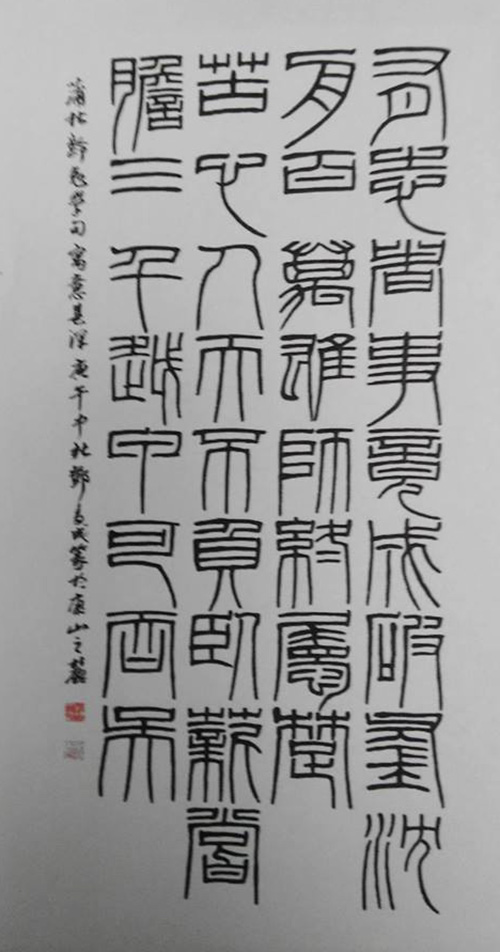 有志者事竟成破釜沈
舟百萬雄師終屬楚
苦心人天不負臥薪嘗
膽三千越甲可吞吳
蒲松齡勉學句寓意甚深庚午中秋鄭成篆於唐山之